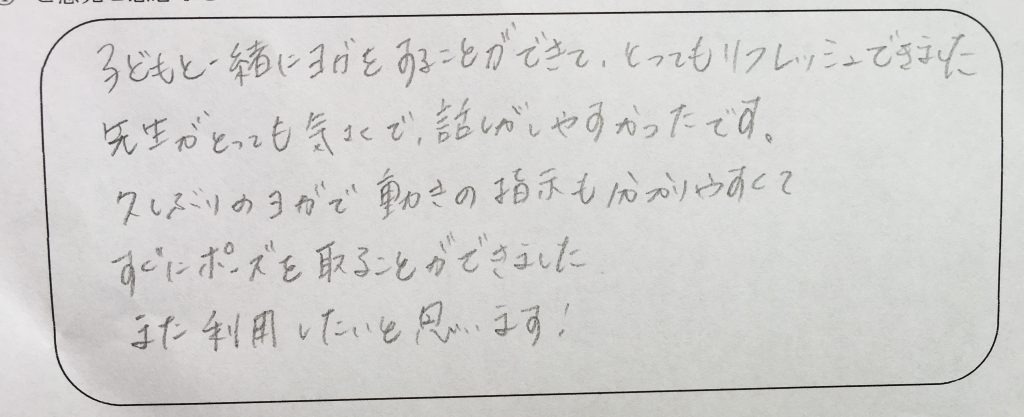 子どもと一緒にヨガをすることができて、とってもリフレッシュできました
先生がとっても気さくで、話しがしやすかったです。
久しぶりのヨガで動きの指示も分かりやすくて
すぐにポーズを取ることができました
また利用したいと思います!